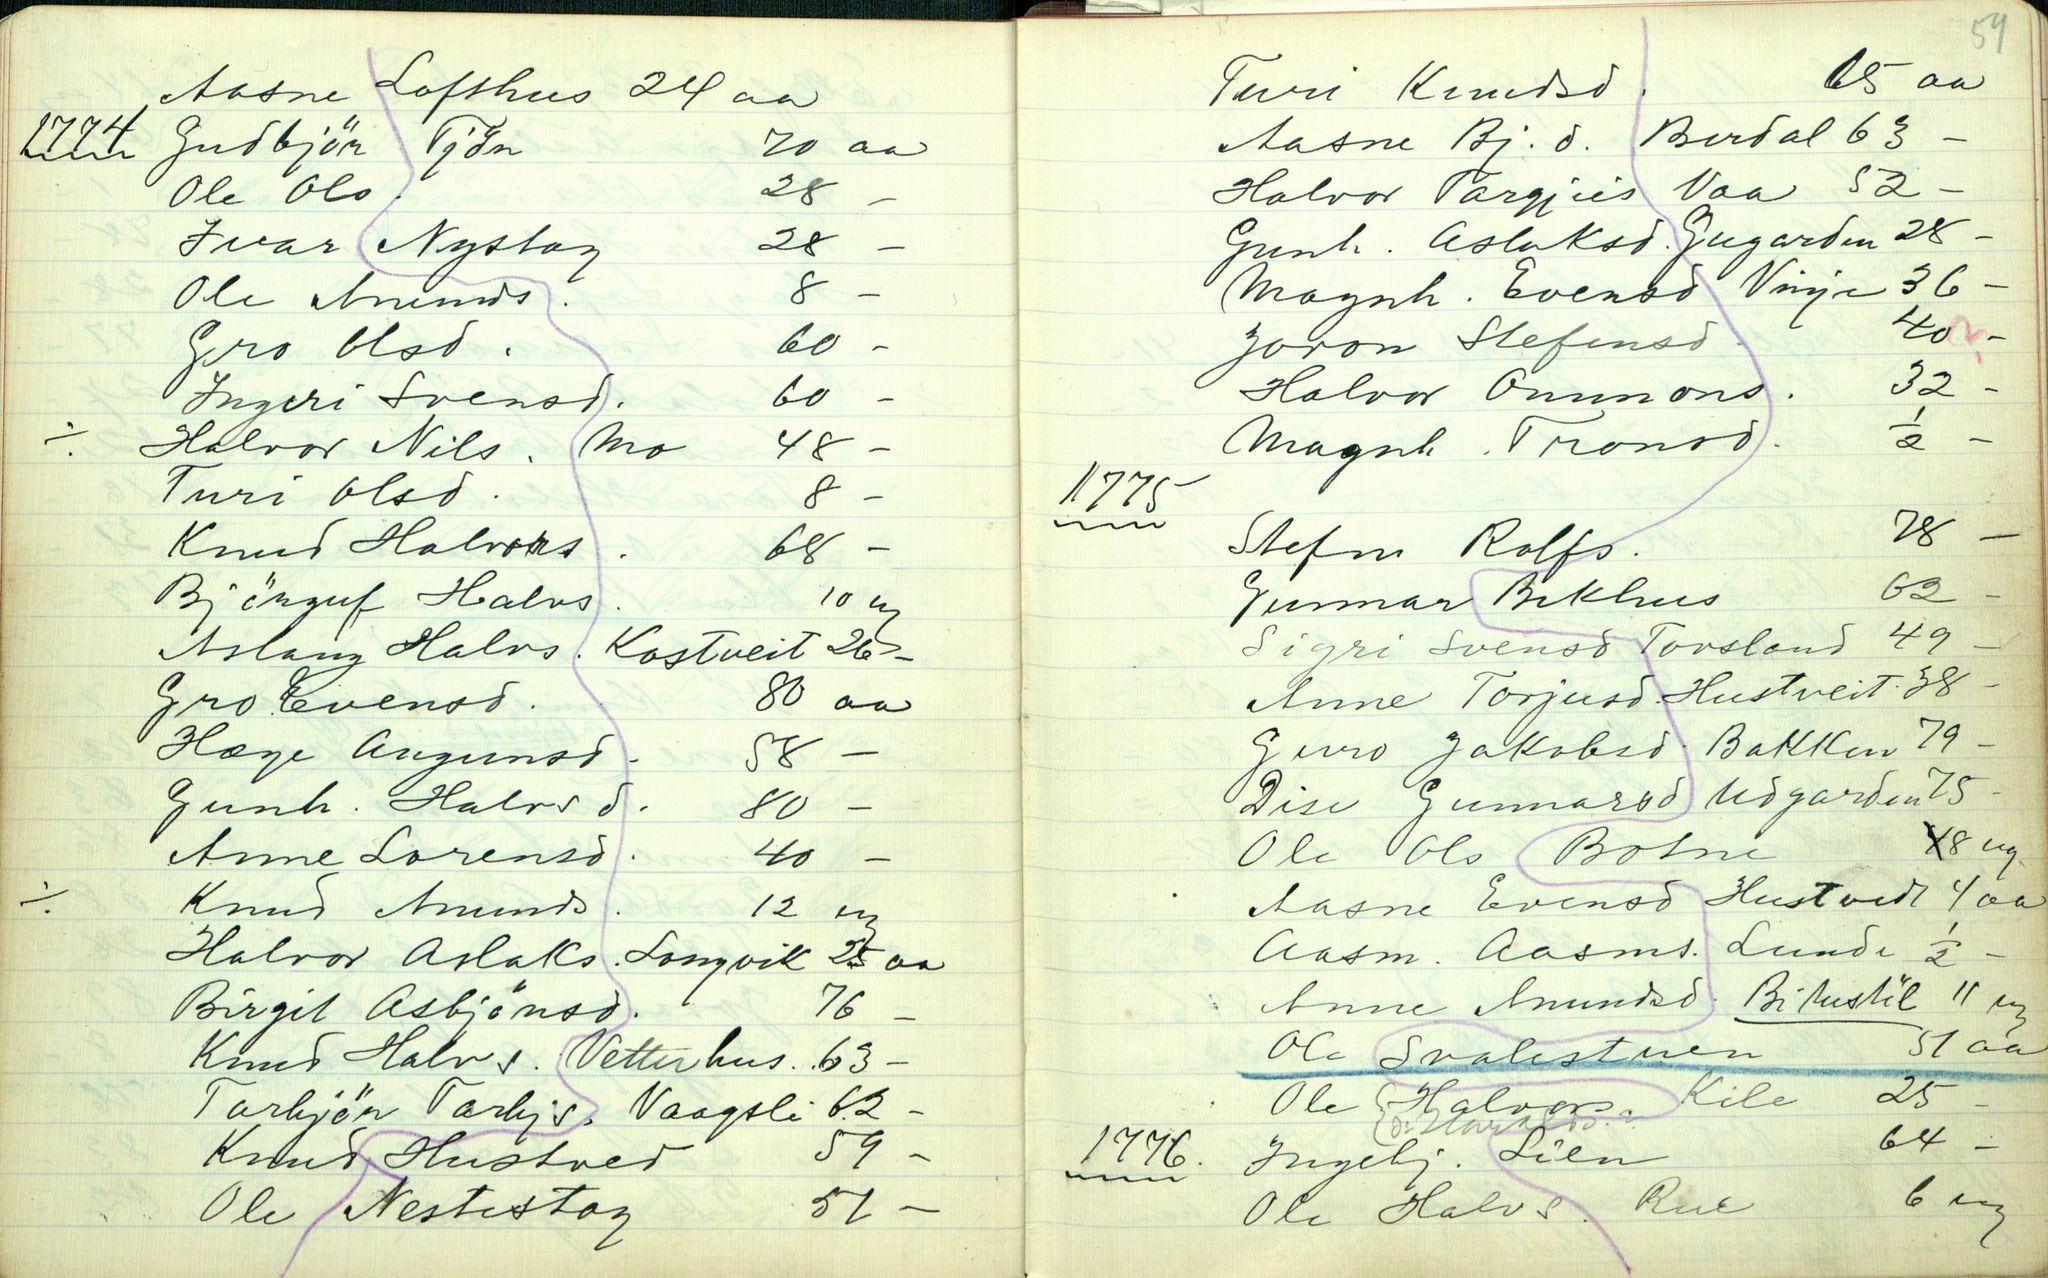 Aasne Lofthus 24 aa
1774 Gudbjör Tjön 70 aa
Ole Ols. 28 -
Ivar Nystog 28 -
Ole Anunds. 8 -
Gro Olsd. 60 -
Ingeri Svensd. 60 -
÷ Halvor Nils. Mo 48 -
Turi Olsd. 8 -
Knud Halvors. 68 -
Björguf Halvs. 10 ug
Aslaug Halvs. Kostveit 26 -
Gro Evensd. 80 aa
Hæge Augunsd. 58 -
Gunh. Halvsd. 80 -
Anne Lorensd. 40 -
÷ Knud Anunds. 12 ug
Halvor Aslaks. Longvik 25 aa
Birgit Asbjönsd. 76 -
Knud Halvs. Vetterhus. 63 -
Tarbjör Tarbjs. Vaagsli 62 -
Knud Hustved 59 -
Ole Nestestog 51 -
54
Turi Knudsd. 65 aa
Aasne Bj. d. Berdal 63 -
Halvor Targjeis Vaa 52 -
Gunh. Aslaksd. Gugarden 28 -
Magnh. Evensd Vinje 36 -
Joron Stefensd. 40 - ?
Halvor Ommons. 32 -
Magnh. Tronsd. 1/2 -
1775
Stefen Rolfs. 78 -
Gunnar Bekhus 62 -
Sigri Svensd Torsland 49 -
Anne Torjusd. Hustveit. 38 -
Guro Jakobsd. Bakken 79 -
Dise Gunnarsd Udgarden 75 -
Ole Ols Botne 8 ug
Aasne Evensd Hustvedt 4 aa
Aasm. Aasms. Lunde 1/2 -
Anne Anundsd. Bitustöl 11 ug
Ole Svalestuen 51 aa
Ole Halvors. Kile 25 -
1776. Ingebj. Lien 64 -
Ole Halvs. Rue 6 ug